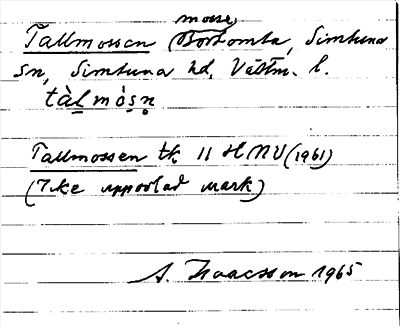 mosse,
Tallmossen Bortomta, Simtuna
sn, Simtuna hd, Västm. l.
tàl mòsn̥
Tallmossen tk 11 H NV (1961)
(Icke uppodlad mark)
A. Isaacsson 1965